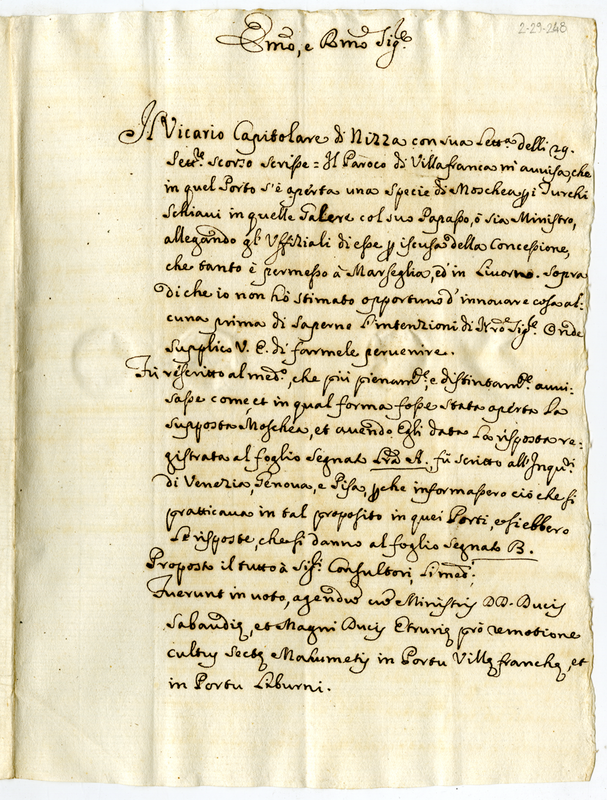 2-29-248
Emo, e Rmo Sigr.
Il Vicario Capitolare di Nizza con sua Letta. delli 29.
Settre. scorso scrisse = Il Paroco di Villafranca m'auuisa, che
in quel Porto s'è aperta una specie di Moschea p i Turchi
Schiaui in quelle Galere col suo Papasso, ò sia Ministro,
allegando gl'Uffiziali di esse p iscusa della Concessione,
che tanto è permesso à Marseglia, ed in Liuorno. Sopra
di che io non hò stimato opportuno d'innouare cosa al:
cuna prima di saperne l'intenzioni di Nro Sigre. Onde
supplico V. E. di farmele peruenire.
Fù rescritto al medo., che più pienamte. e distintamte. auui:
sasse come, et in qual forma fosse stata aperta la
supposta Moschea, et auendo Egli data la risposta re:
gistrata al foglio segnat Lra A., fù scritto all'Inqri.
di Venezia, Genoua, e Pisa, pche informassero ciò che si
pratticaua in tal proposito in quei Porti, e si ebbero
le risposte, che si danno al foglio segnato B.
Proposto il tutto à Sigri. Consultori, li med:
Fuerunt in voto, agendu cu Ministris DD. Ducis
Sabaudię, et Magni Ducis Etrurię prò remotione
cultus Sectę Mahumetis in Portu Villę franchę, et
in Portu Liburni.